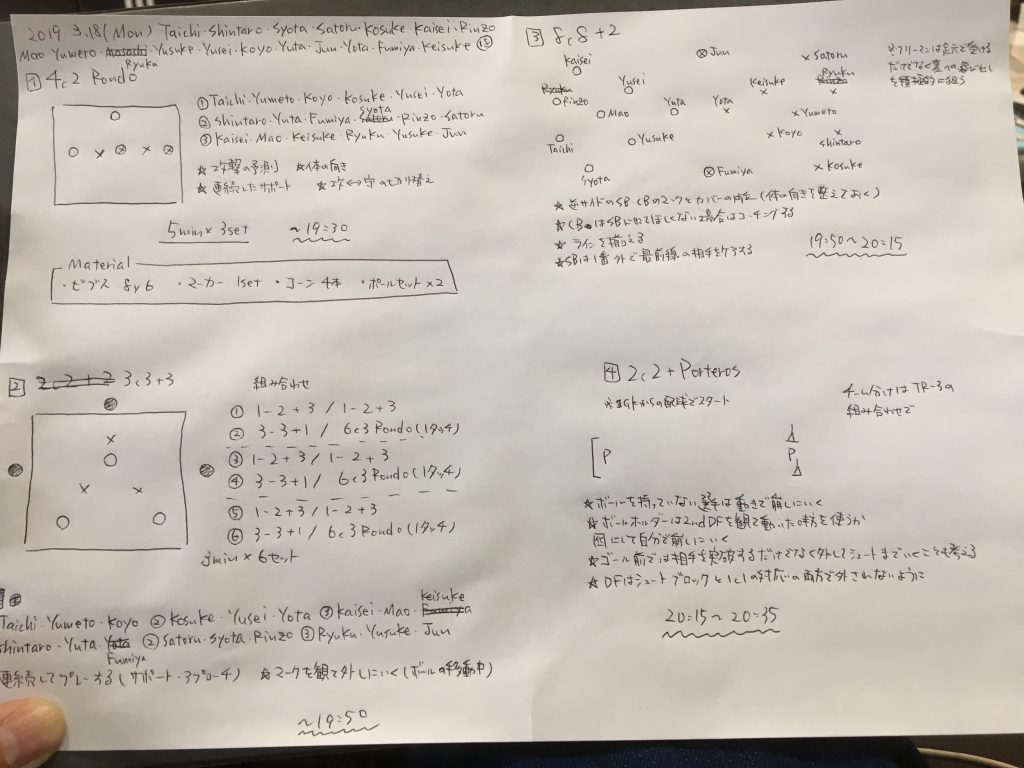 2019 3.18(Mon) Taichi・Shintaro・Syota・Satoru・Kosuke・Kaisei・Rinzo
Mao・Yumeto・Masashi・Yusuke・Yusei・Koyo・Yuta・Jun・Yota・Fumiya・Keisuke ⑱
Ryuku
1 4c2 Rondo
① Taichi・Yumeto・Koyo・Kosuke・Yusei・Yota
Syota
② Shintaro・Yuta・Fumiya・Satoru・Rinzo・Satoru
③ Kaisei・Mao・Keisuke・Ryuku・Yusuke・Jun
☆攻撃の予測 ☆体の向き
☆連続したサポート ☆攻↔守の切り替え
5min×3set ～19:30
Material
・ビブス 8y6 ・マーカー 1set ・コーン4本 ・ボールセット×2
2 2c2+2 3c3+3
組み合わせ
① 1-2+3 / 1-2+3
② 3-3+1 / 6c3Rondo(1タッチ)
③ 1-2+3 / 1-2+3
④ 3-3+1 / 6c3Rondo(1タッチ)
⑤ 1-2+3 / 1-2+3
⑥ 3-3+1 / 6c3Rondo(1タッチ)
3min×6セット
Keisuke
Taichi・Yumeto・Koyo ②Kosuke・Yusei・Yota ③Kaisei・Mao・Fumiya
Shintaro・Yuta・Yota ②Satoru・Syota・Rinzo ③Ryuku・Yusuke・Jun
Fumiya
連続してプレーする(サポート・アプローチ) ☆マークを観て外しにいく(ボールの移動中)
～19:50
3 8c8+2
Kaisei
Jun
Satoru
Ryuku
Rinzo
Yusei
Keisuke
Ryuku
Rinzo
Mao
Yuta
Yota
Yumeto
Taichi
Yusuke
Koyo
Shintaro
Syota
Fumiya
Kosuke
※フリーマンは足元で受ける
だけでなく裏への飛び出し
を積極的に狙う
☆逆サイドのSB・CBのマークとカバーの修正(体の向きを整えておく)
☆CBはSBに出てほしくない場合はコーチングする
☆ラインを揃える
☆SBは1番外で最前線の相手をケアする
19:50～20:15
4 2c2+Porteros
※GKからの配球でスタート
チーム分けはTR-3の
組み合わせで
P
P
☆ボールを持っていない選手は動きで崩しにいく
☆ボールホルダーは2ndDFを観て動いた味方を使うか
囮にして自分で崩しにいく
☆ゴール前では相手を突破するだけでなく外してシュートまでいくことも考える
☆DFはシュートブロックと1c1の対応の両方で外されないように
20:15～20:35